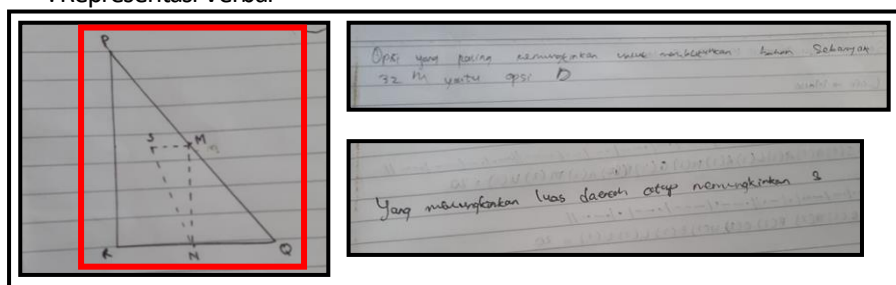 Representasi Verbal
P
S
M
R
N
Q
Opsi yang paling memungkinkan untuk membutuhkan bahan Sebanyak
32 M yaitu opsi D
Yang memungkinkan luas daerah atap memungkinkan 3